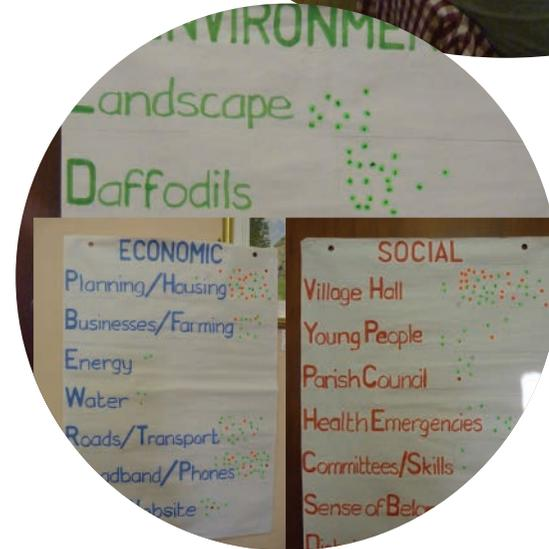 ENVIRONMEN
Landscape
Daffodils
ECONOMIC
Planning/Housing
Businesses/Farming
Energy
Water
Roads/Transport
adband/Phones
ebsite
SOCIAL
Village Hall
Young People
Parish Council
Health Emergencies
Committees/Skills
Sense of Belo